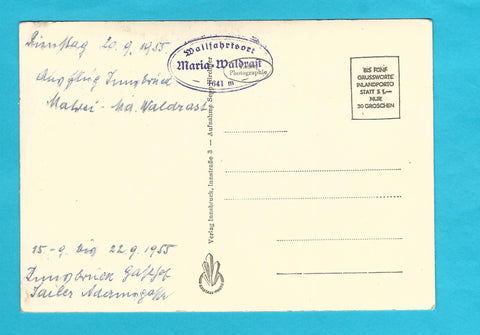 Dienstag 20.9.1955
Ausflug Innsbruck
Matrei - Ma. Waldrast
15.-9. bis 22.9.1955
Innsbruck Gasthof
Sailer Adamgasse
Wallfahrtsort
Maria-Waldrast
Photographie
1641 m
Verlag Innsbruck, Innstraße 3 — Aufnahme
BIS FÜNF
GRUSSWORTE
INLANDPORTO
STATT S 1,—
NUR
30 GROSCHEN